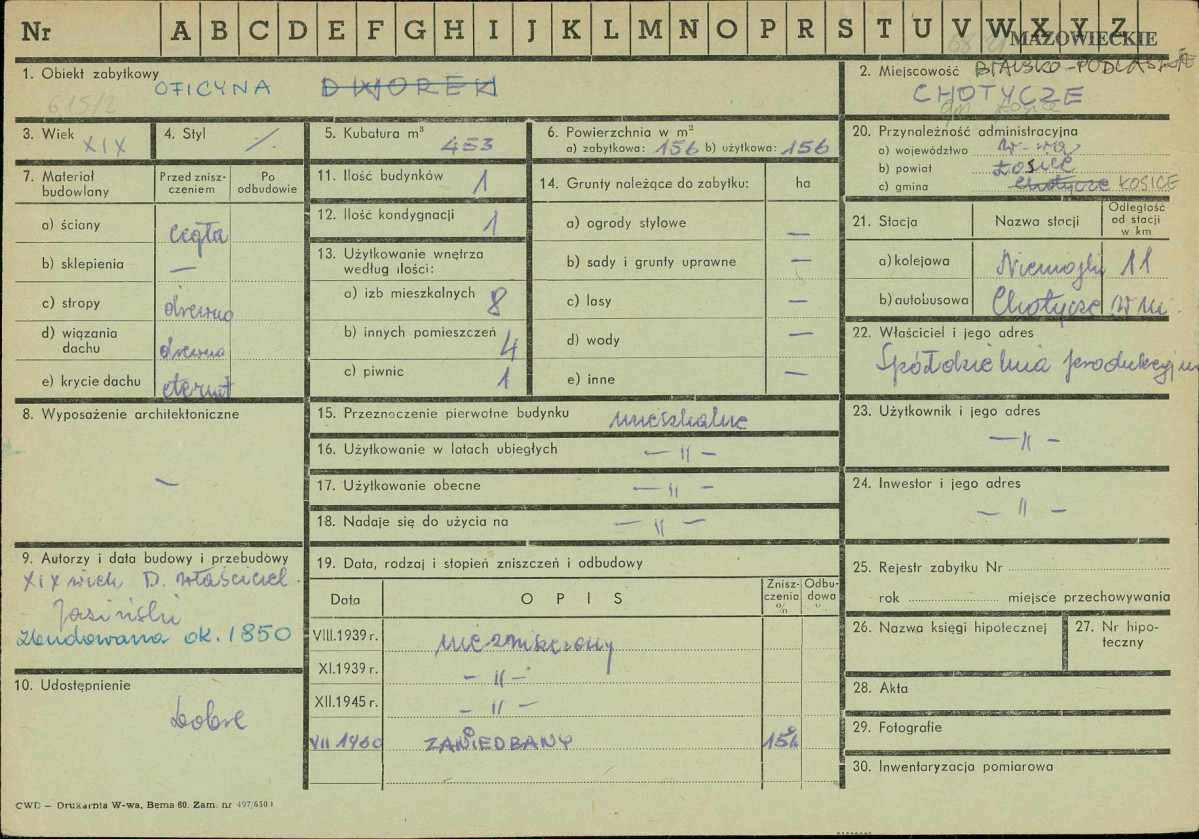 Nr A B C D E F G H I J K L M N O P R S T U V W X Y Z
MAZOWIECKIE
1. Obiekt zabytkowy
OFICYNA DWOREK
615/2
2. Miejscowość BIALSKO-PODLASKIE
CHOTYCZE
gm. Łosice
3. Wiek XIX
4. Styl /.
5. Kubatura m³
453
6. Powierzchnia w m²
a) zabytkowa: 156 b) użytkowa: 156
20. Przynależność administracyjna
a) województwo W-wa
b) powiat Łosice
c) gmina Chotycze ŁOSICE
7. Materiał budowlany
Przed znisz-
czeniem
Po
odbudowie
a) ściany cegła
b) sklepienia —
c) stropy drewno
d) wiązania
dachu drewno
e) krycie dachu eternit
11. Ilość budynków 1
12. Ilość kondygnacji 1
13. Użytkowanie wnętrza
według ilości:
a) izb mieszkalnych 8
b) innych pomieszczeń 4
c) piwnic 1
14. Grunty należące do zabytku: ha
a) ogrody stylowe —
b) sady i grunty uprawne —
c) lasy —
d) wody —
e) inne —
21. Stacja Nazwa stacji
Odległość
od stacji
w km
a) kolejowa Niemojki 11
b) autobusowa Chotycze w m.
22. Właściciel i jego adres
Spółdzielnia produkcyjna
8. Wyposażenie architektoniczne
—
15. Przeznaczenie pierwotne budynku mieszkalne
16. Użytkowanie w latach ubiegłych — " —
17. Użytkowanie obecne — " —
18. Nadaje się do użycia na — " —
23. Użytkownik i jego adres
— " —
24. Inwestor i jego adres
— " —
9. Autorzy i data budowy i przebudowy
XIX wiek D. właściciel
Jasiński
Zbudowana ok. 1850
10. Udostępnienie
Dobre
19. Data, rodzaj i stopień zniszczeń i odbudowy
Data OPIS
Znisz-
czenia
%
Odbu-
dowa
%
VIII.1939 r. niezniszczony
XI.1939 r. — " —
XII.1945 r. — " —
VII 1960 ZANIEDBANY 15%
25. Rejestr zabytku Nr
rok miejsce przechowywania
26. Nazwa księgi hipotecznej
27. Nr hipo-
teczny
28. Akta
29. Fotografie
30. Inwentaryzacja pomiarowa
CWD – Drukarnia W-wa, Bema 60. Zam. nr 497/650